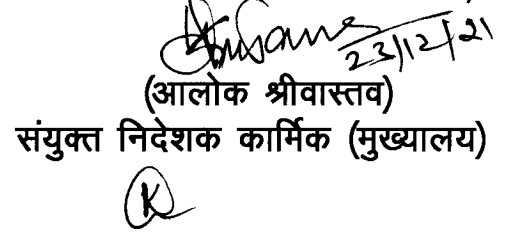 23/12/21
(आलोक श्रीवास्तव)
संयुक्त निदेशक कार्मिक (मुख्यालय)
K